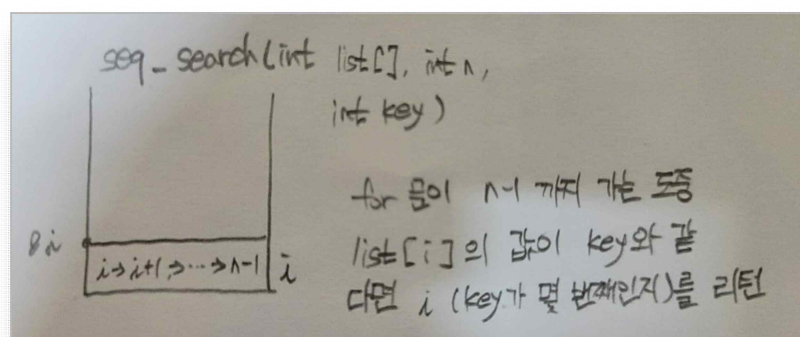 seq_search(int list[], int n,
int key)
for 문이 n-1 까지 가는 도중
list[i]의 값이 key와 같
다면 i (key가 몇 번째인지)를 리턴
&i
i→i+1,→…→n-1
i